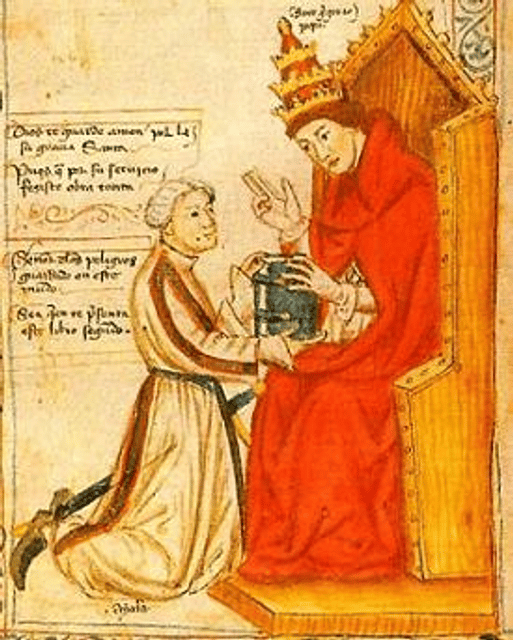 San grigorio
papa
Dios te guarde amen por la
su gracia Santa
Pues q̃ por su seruicio
fegiste obra tanta
Señor delos peligros
guardado en este
mundo
Sea quien te presenta
este libro segundo
Ayala